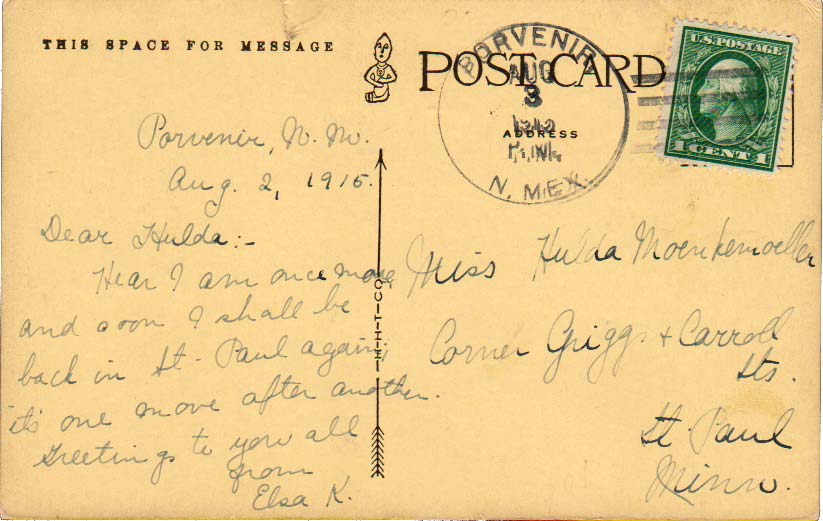 THIS SPACE FOR MESSAGE
POST CARD
ADDRESS
PORVENIR,
AUG
3
1915
P.M.
N. MEX.
U.S. POSTAGE
1 CENT 1
Porvenir, N. M.
Aug. 2, 1915.
Dear Hulda:-
Hear I am once more
and soon I shall be
back in St. Paul again,
it's one move after another.
Greetings to you all
from
Elsa K.
H-H-T-CO.
Miss Hulda Moenkemoeller
Corner Griggs + Carroll
Sts.
St. Paul
Minn.